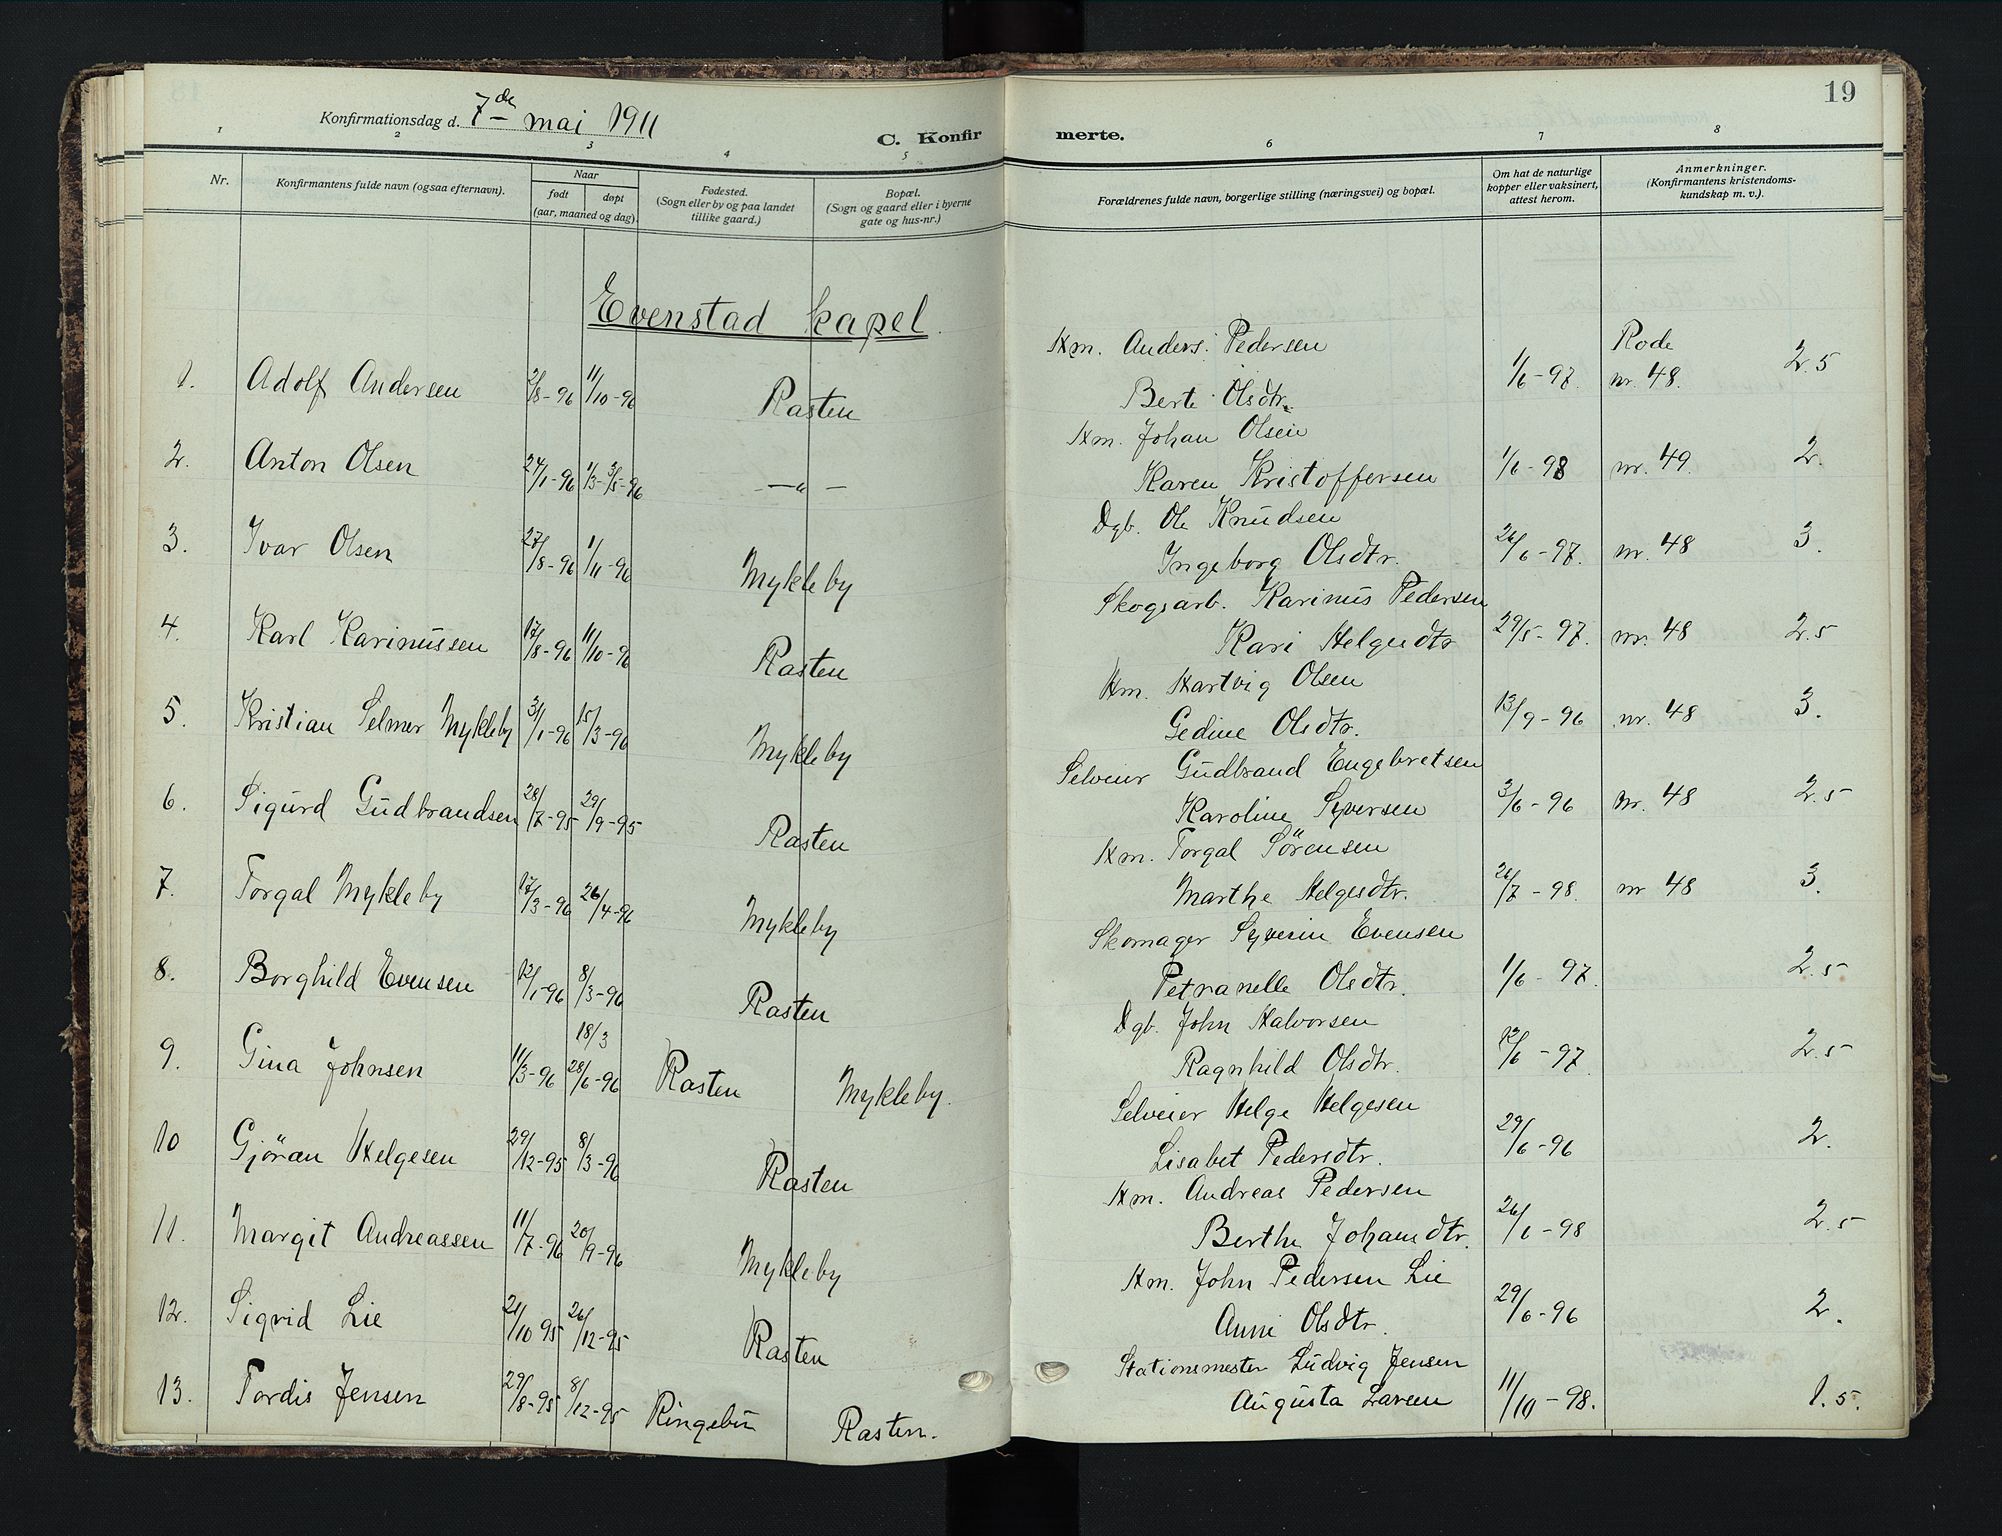 Konfirmationsdag d. 7de mai 1911
C. Konfir merte.
19
1 2 3 4 5 6 7 8
Nr.
Konfirmantens fulde navn (ogsaa efternavn).
Naar
født døpt
(aar, maaned og dag).
Fødested.
(Sogn eller by og paa landet
tillike gaard.)
Bopæl.
(Sogn og gaard eller i byerne
gate og hus-nr.)
Forældrenes fulde navn, borgerlige stilling (næringsvei) og bopæl.
Om hat de naturlige
kopper eller vaksinert,
attest herom.
Anmerkninger.
(Konfirmantens kristendoms-
kundskap m. v.).
Evenstad kapel.
Hm. Anders Pedersen Rode
1. Adolf Andersen 2/8-96 11/10-96 Rasten 1/6-97. nr. 48. 2.5
Berte Olsdtr.
Hm. Johan Olsen
2. Anton Olsen 24/1-96 1/3-3/5-96 —"— 1/6-98 nr. 49. 2.
Karen Kristoffersen
Dgb. Ole Knudsen
3. Ivar Olsen 27/8-96 1/11-96 Mykleby 26/6-97. nr. 48 3.
Ingeborg Olsdtr.
Skogsarb. Karinus Pedersen
4. Karl Karinussen 17/8-96 11/10-96 Rasten 29/5-97. nr. 48 2.5
Kari Helgesdtr
Hm. Hartvig Olsen
5. Kristian Selmer Mykleby 3/1-96 15/3-96 Mykleby 13/9-96 nr. 48 3.
Gedine Olsdtr.
Selveier Gudbrand Engebretsen
6. Sigurd Gudbrandsen 28/7-95 29/9-95 Rasten 3/6-96 nr. 48 2.5
Karoline Syversen
Hm. Torgal Sörensen
7. Torgal Mykleby 17/3-96 26/4-96 Mykleby 26/7-98. nr 48 3.
Marthe Helgesdtr.
Skomager Syverin Evensen
8. Borghild Evensen 12/1-96 8/3-96 Rasten 1/6-97. 2.5
Petranelle Olsdtr.
Dgb. John Halvorsen
18/3
9. Gina Johnsen 11/3-96 28/6-96 Rasten Mykleby. 12/6-97 2.5
Ragnhild Olsdtr.
Selveier Helge Helgesen
10 Gjöran Helgesen 29/12-95 8/3-96 Rasten 29/6-96 2.
Lisabet Pedersdtr.
Hm. Andreas Pedersen
11. Margit Andreassen 11/7-96 20/9-96 Mykleby 26/6-98 2.5
Berthe Johansdtr.
Hm. John Pedersen Lie
12. Sigrid Lie 21/10 95 26/12-95 Rasten 29/6-96 2.
Anne Olsdtr.
Stationsmester Ludvig Jensen
13. Tordis Jensen 29/8-95 8/12-95 Ringebu Rasten. 11/10-98. 1.5.
Augusta Larsen